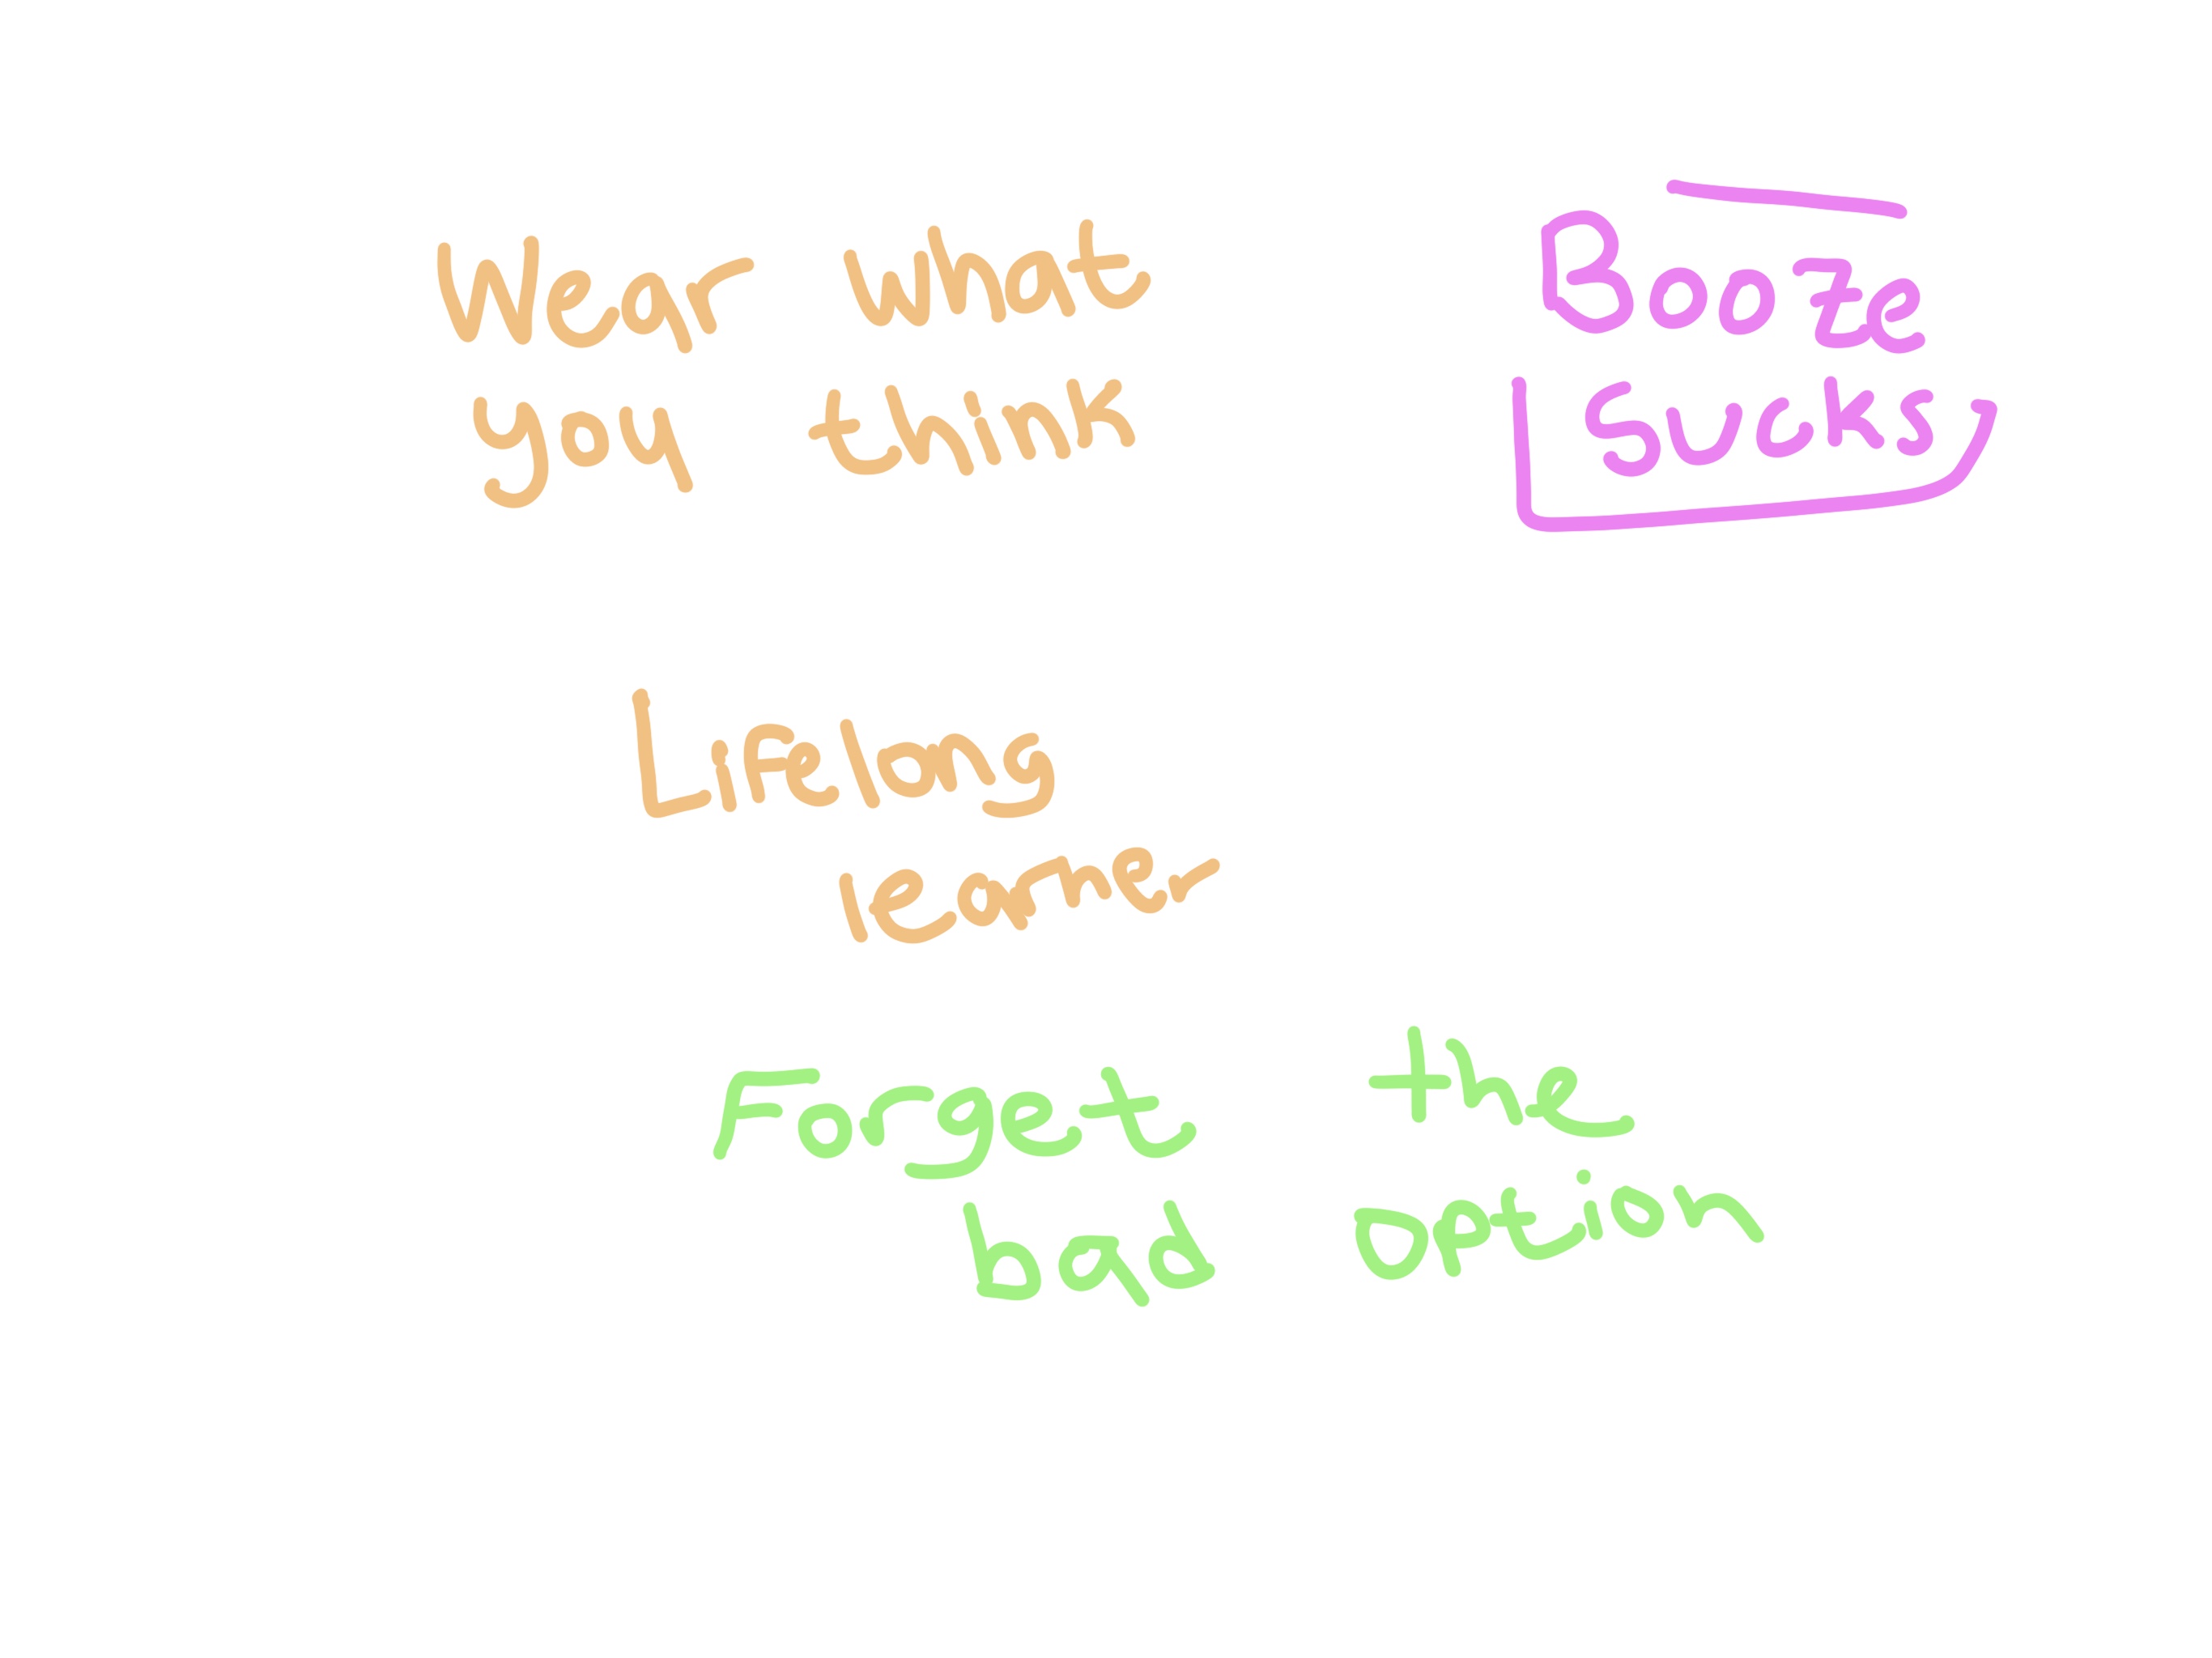 Wear what
you think
Booze
Sucks
Lifelong
learner
Forget the
bad option